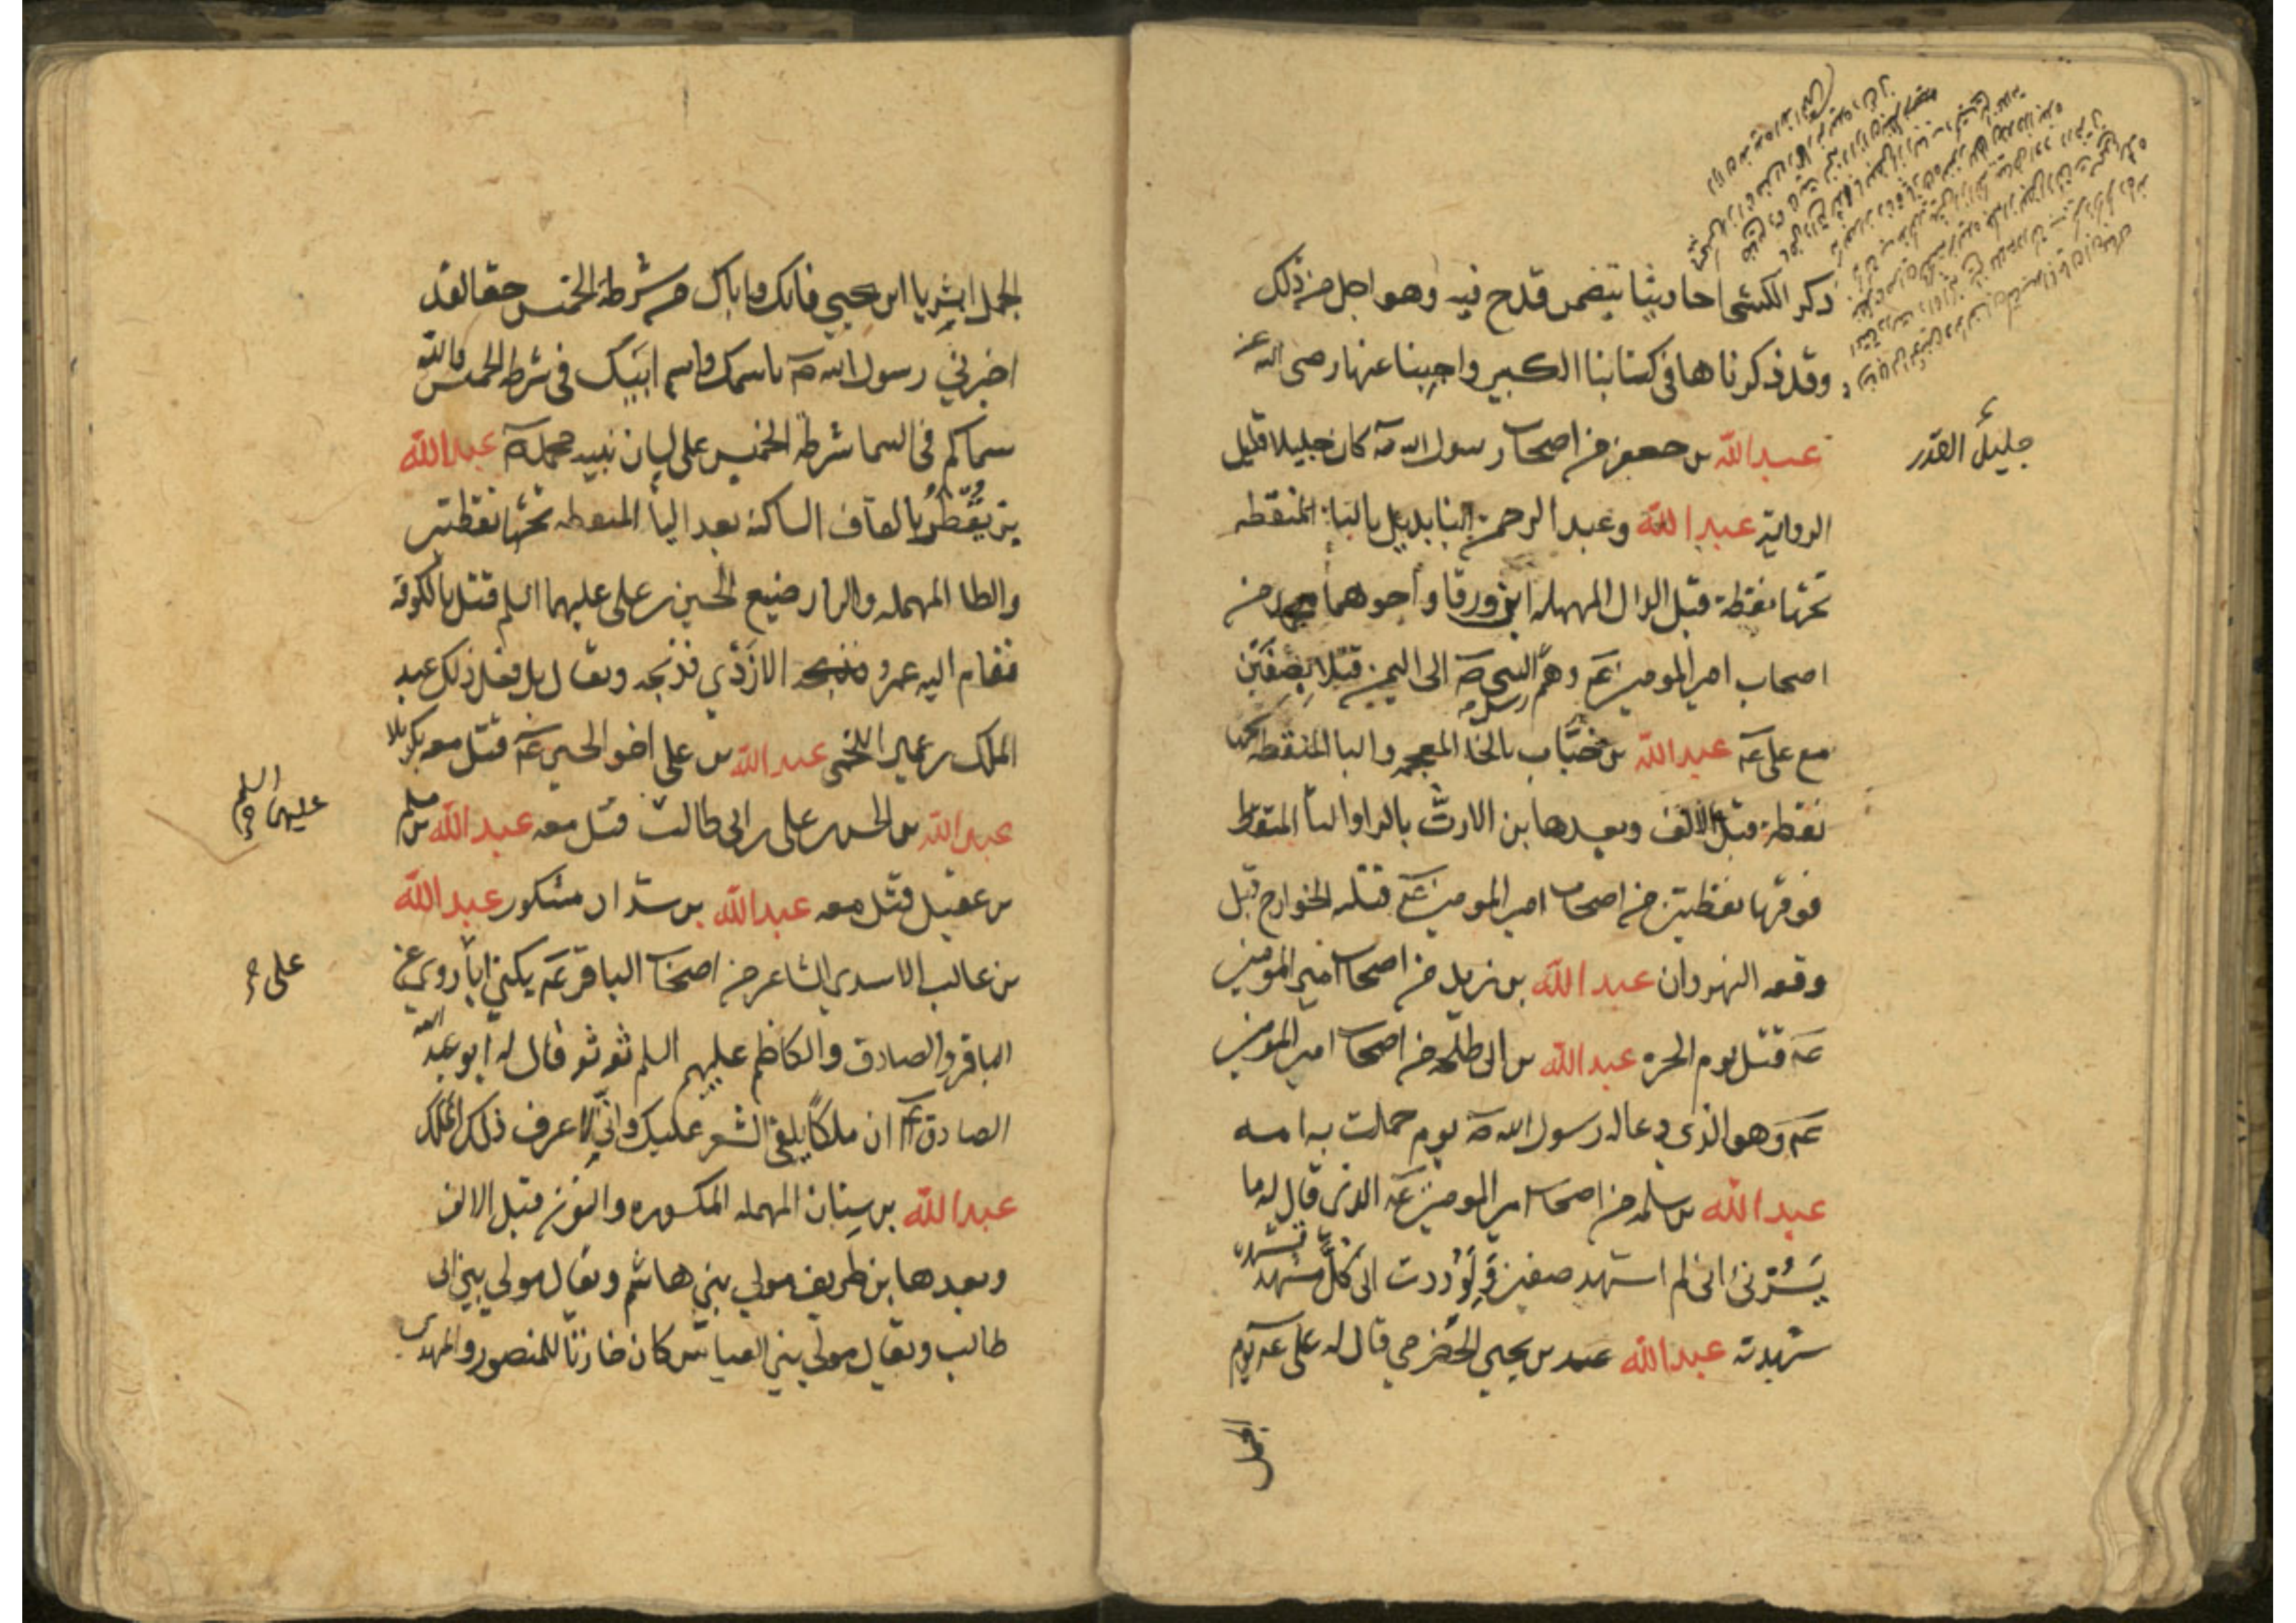 ذكر الكشي احاديثا يتضمن قدح فيه وهو اجل من ذلك
وقد ذكرناها في كتابنا الكبير واجبنا عنها رضي الله عنه
عبد الله بن جعفر من اصحاب رسول الله صه كان جليلا قليل
جليل القدر
الرواية عبد الله وعبد الرحمن ابنا بديل بالباء المنقطه
تحتها نقطة قبل الدال المهمله ابن ورقا واخوهما محمد من
اصحاب امير المومنين عه وهم رسل النبي صه الى اليمن قتلا بصفين
مع علي عه عبد الله بن خباب بالخا المعجمه والبا المنقطه تحتها
نقطة قبل الالف وبعدها بن الارت بالرا والتا المنقطه
فوقها نقطتين من اصحاب امير المومنين عه قتله الخوارج قبل
وقعه النهروان عبد الله بن يزيد من اصحاب امير المومنين
عه قتل يوم الحره عبد الله بن ابي طلحه من اصحاب امير المومنين
عه وهو الذي دعا له رسول الله صه يوم حملت به امه
عبد الله بن سلمه من اصحاب امير المومنين عه الذي قال له ما
يَسُرّني اني لم اشهد صفين ولوددت ان كل مشهد
شهدته عبد الله بن يحيي الحضرمي قال له علي عه يوم
الجمل
الجمل ابشر يا ابن يحيي فانك واباك من شرطة الخميس حقا لقد
اخبرني رسول الله صه باسمك واسم ابيك في شرطه الخميس والله
سماكم في السما شرطة الخميس على لسان نبيه محمد صه عبد الله
بن يقطر بالقاف الساكنة بعد اليا المنقطه تحتها نقطتين
والطا المهمله والرا رضيع الحسين بن علي عليهما السلم قتل بالكوفة
فقام اليه عمرو الازدي فذبحه ويقال بل فعل ذلك عبد
الملك بن عمير اللخمي عبد الله بن علي اخو الحسين عه قتل معه بكربلا
عبد الله بن الحسن بن علي بن ابي طالب قتل معه عبد الله بن مسلم
عليهم السلم
بن عقيل قتل معه عبد الله بن شداد مشكور عبد الله
بن غالب الاسدي الشاعر من اصحاب الباقر عه يكنى ابا روي عن
علي
الباقر والصادق والكاظم عليهم السلم ثقه ثقه قال له ابو عبد الله
الصادق عه ان ملكا يلقي الشعر عليك واني لاعرف ذلك الملك
عبد الله بن سنان المهمله المكسوره والنون قبل الالف
وبعدها بن طريف مولي بني هاشم ويقال مولي بني ابي
طالب ويقال مولي بني العباس كان خازنا للمنصور والمهدي